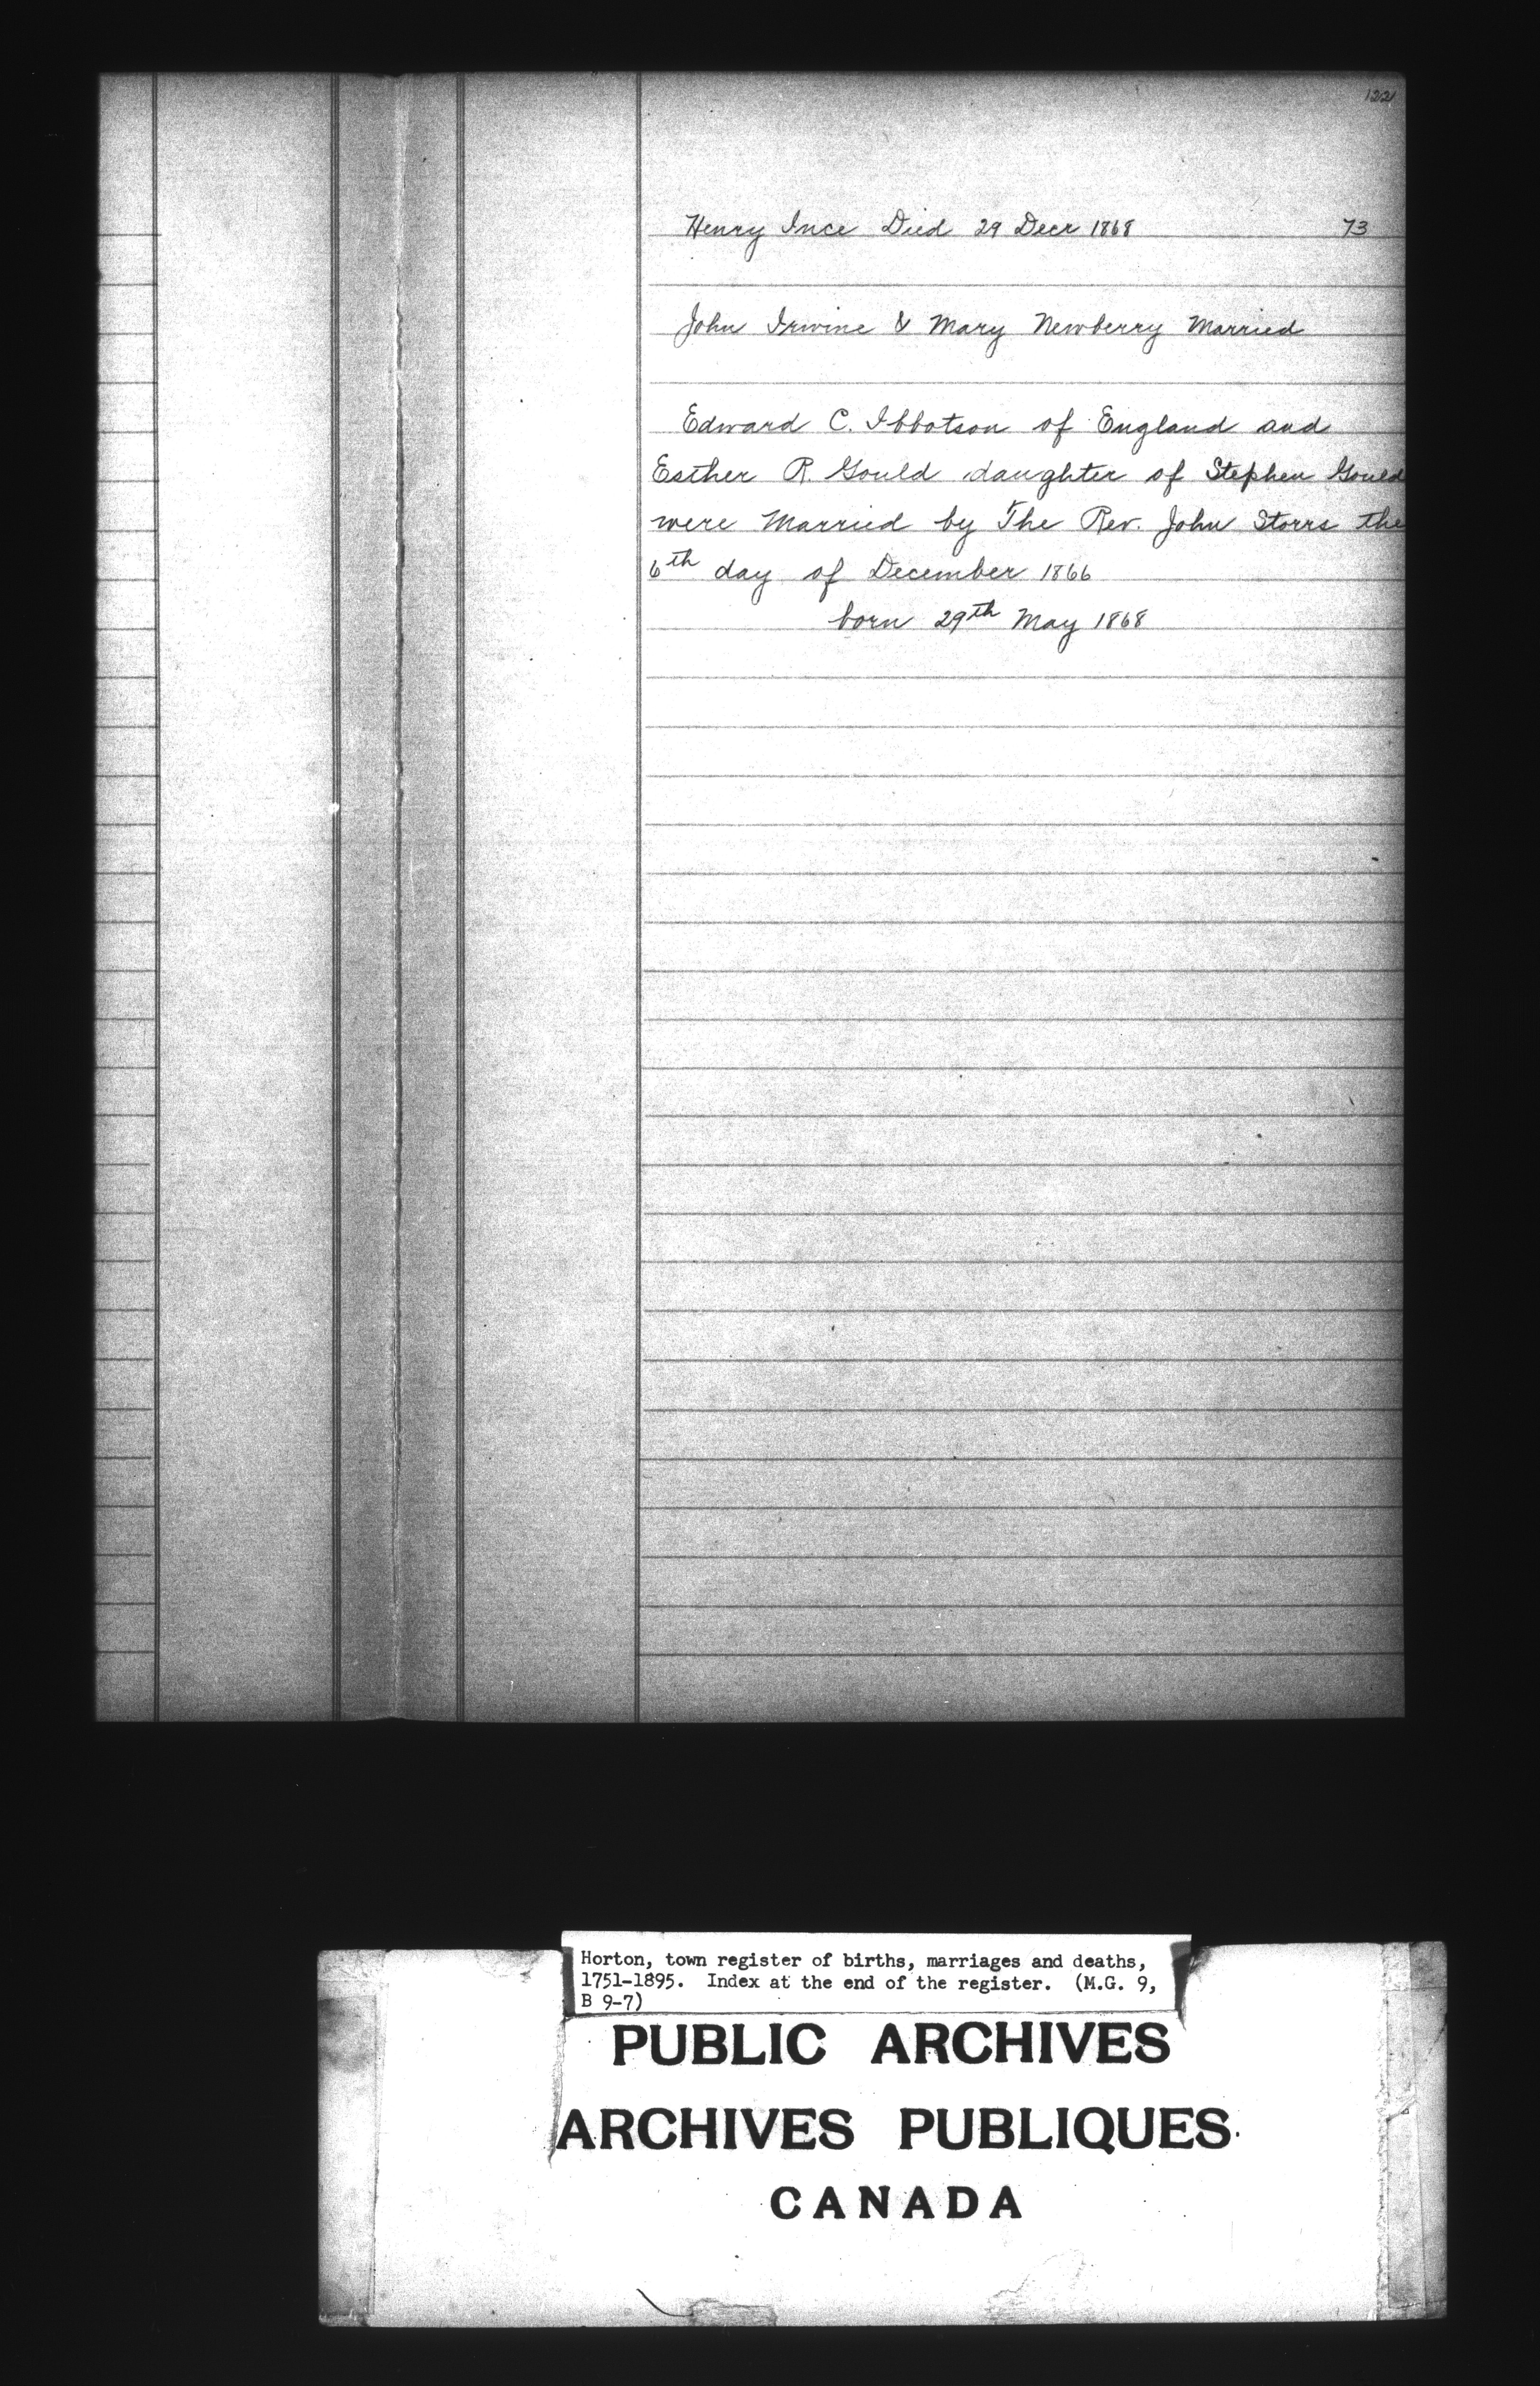 122
Henry Ince Died 29 Decr 1868 73
John Irvine & Mary Newberry Married
Edward C. Ibbotson of England and
Esther R. Gould daughter of Stephen Gould
were Married by The Rev. John Storrs the
6th day of December 1866
born 29th May 1868
Horton, town register of births, marriages and deaths,
1751-1895. Index at the end of the register. (M.G. 9,
B 9-7)
PUBLIC ARCHIVES
ARCHIVES PUBLIQUES
CANADA